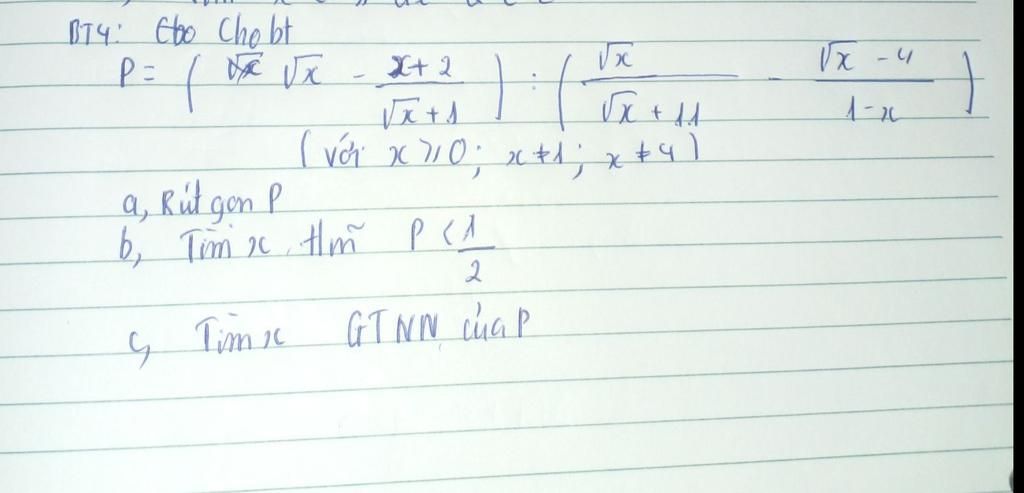 BT4: Cho bt
P = ( √x - x+2 / √x+1 ) : ( √x / √x+11 - √x-4 / 1-x )
(với x ≥ 0; x ≠ 1; x ≠ 4)
a, Rút gọn P
b, Tìm x tlmãn P < 1/2
c, Tìm x GTNN của P